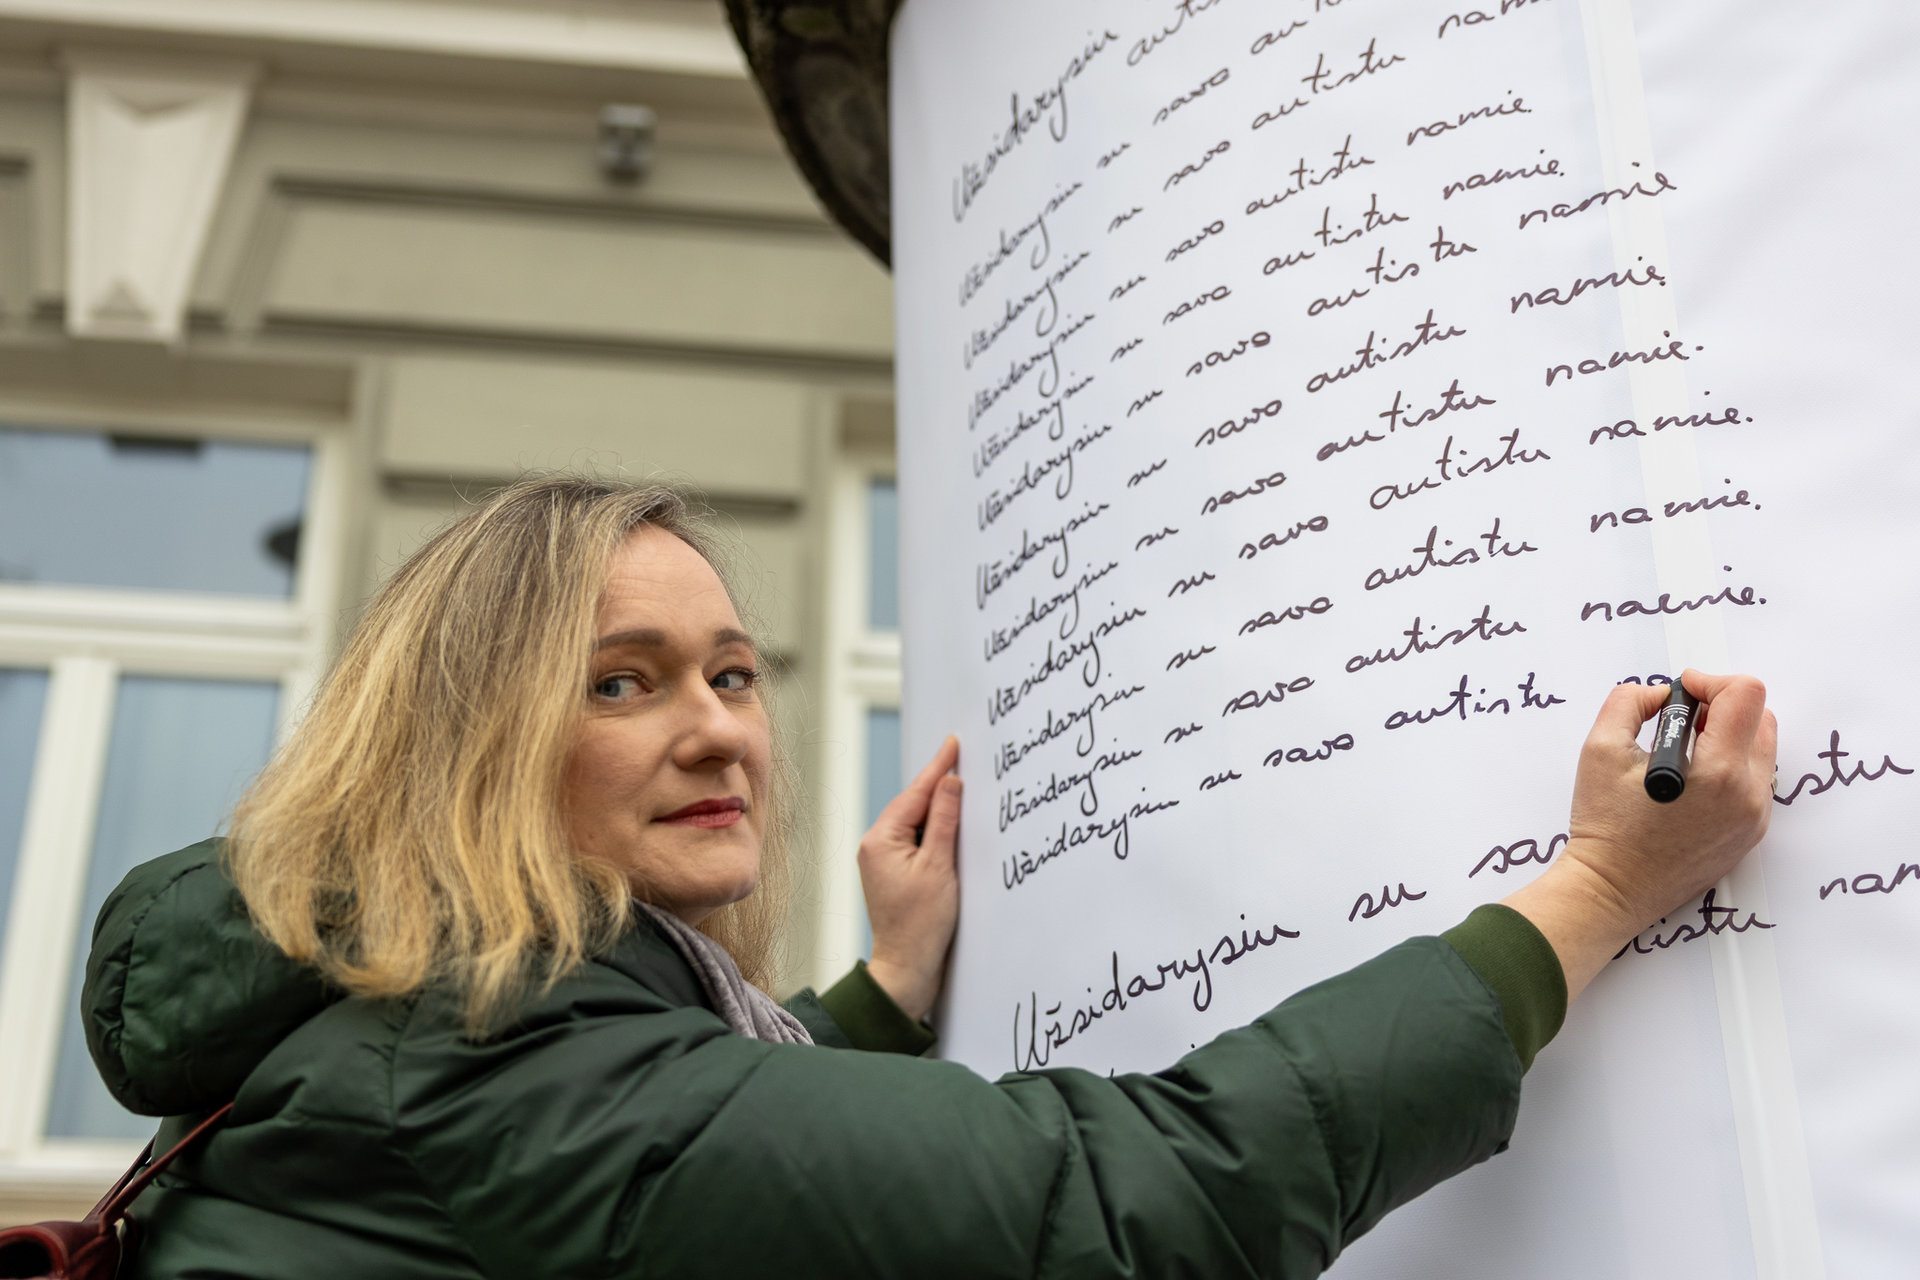 Užsidarysiu autis
Užsidarysiu su savo autistu
Užsidarysiu su savo autistu namie.
Užsidarysiu su savo autistu namie.
Užsidarysiu su savo autistu namie.
Užsidarysiu su savo autistu namie
Užsidarysiu su savo autistu namie.
Užsidarysiu su savo autistu namie.
Užsidarysiu su savo autistu namie.
Užsidarysiu su savo autistu namie.
Užsidarysiu su savo autistu namie.
Užsidarysiu su savo autistu na
Užsidarysiu su sav istu
tistu nam